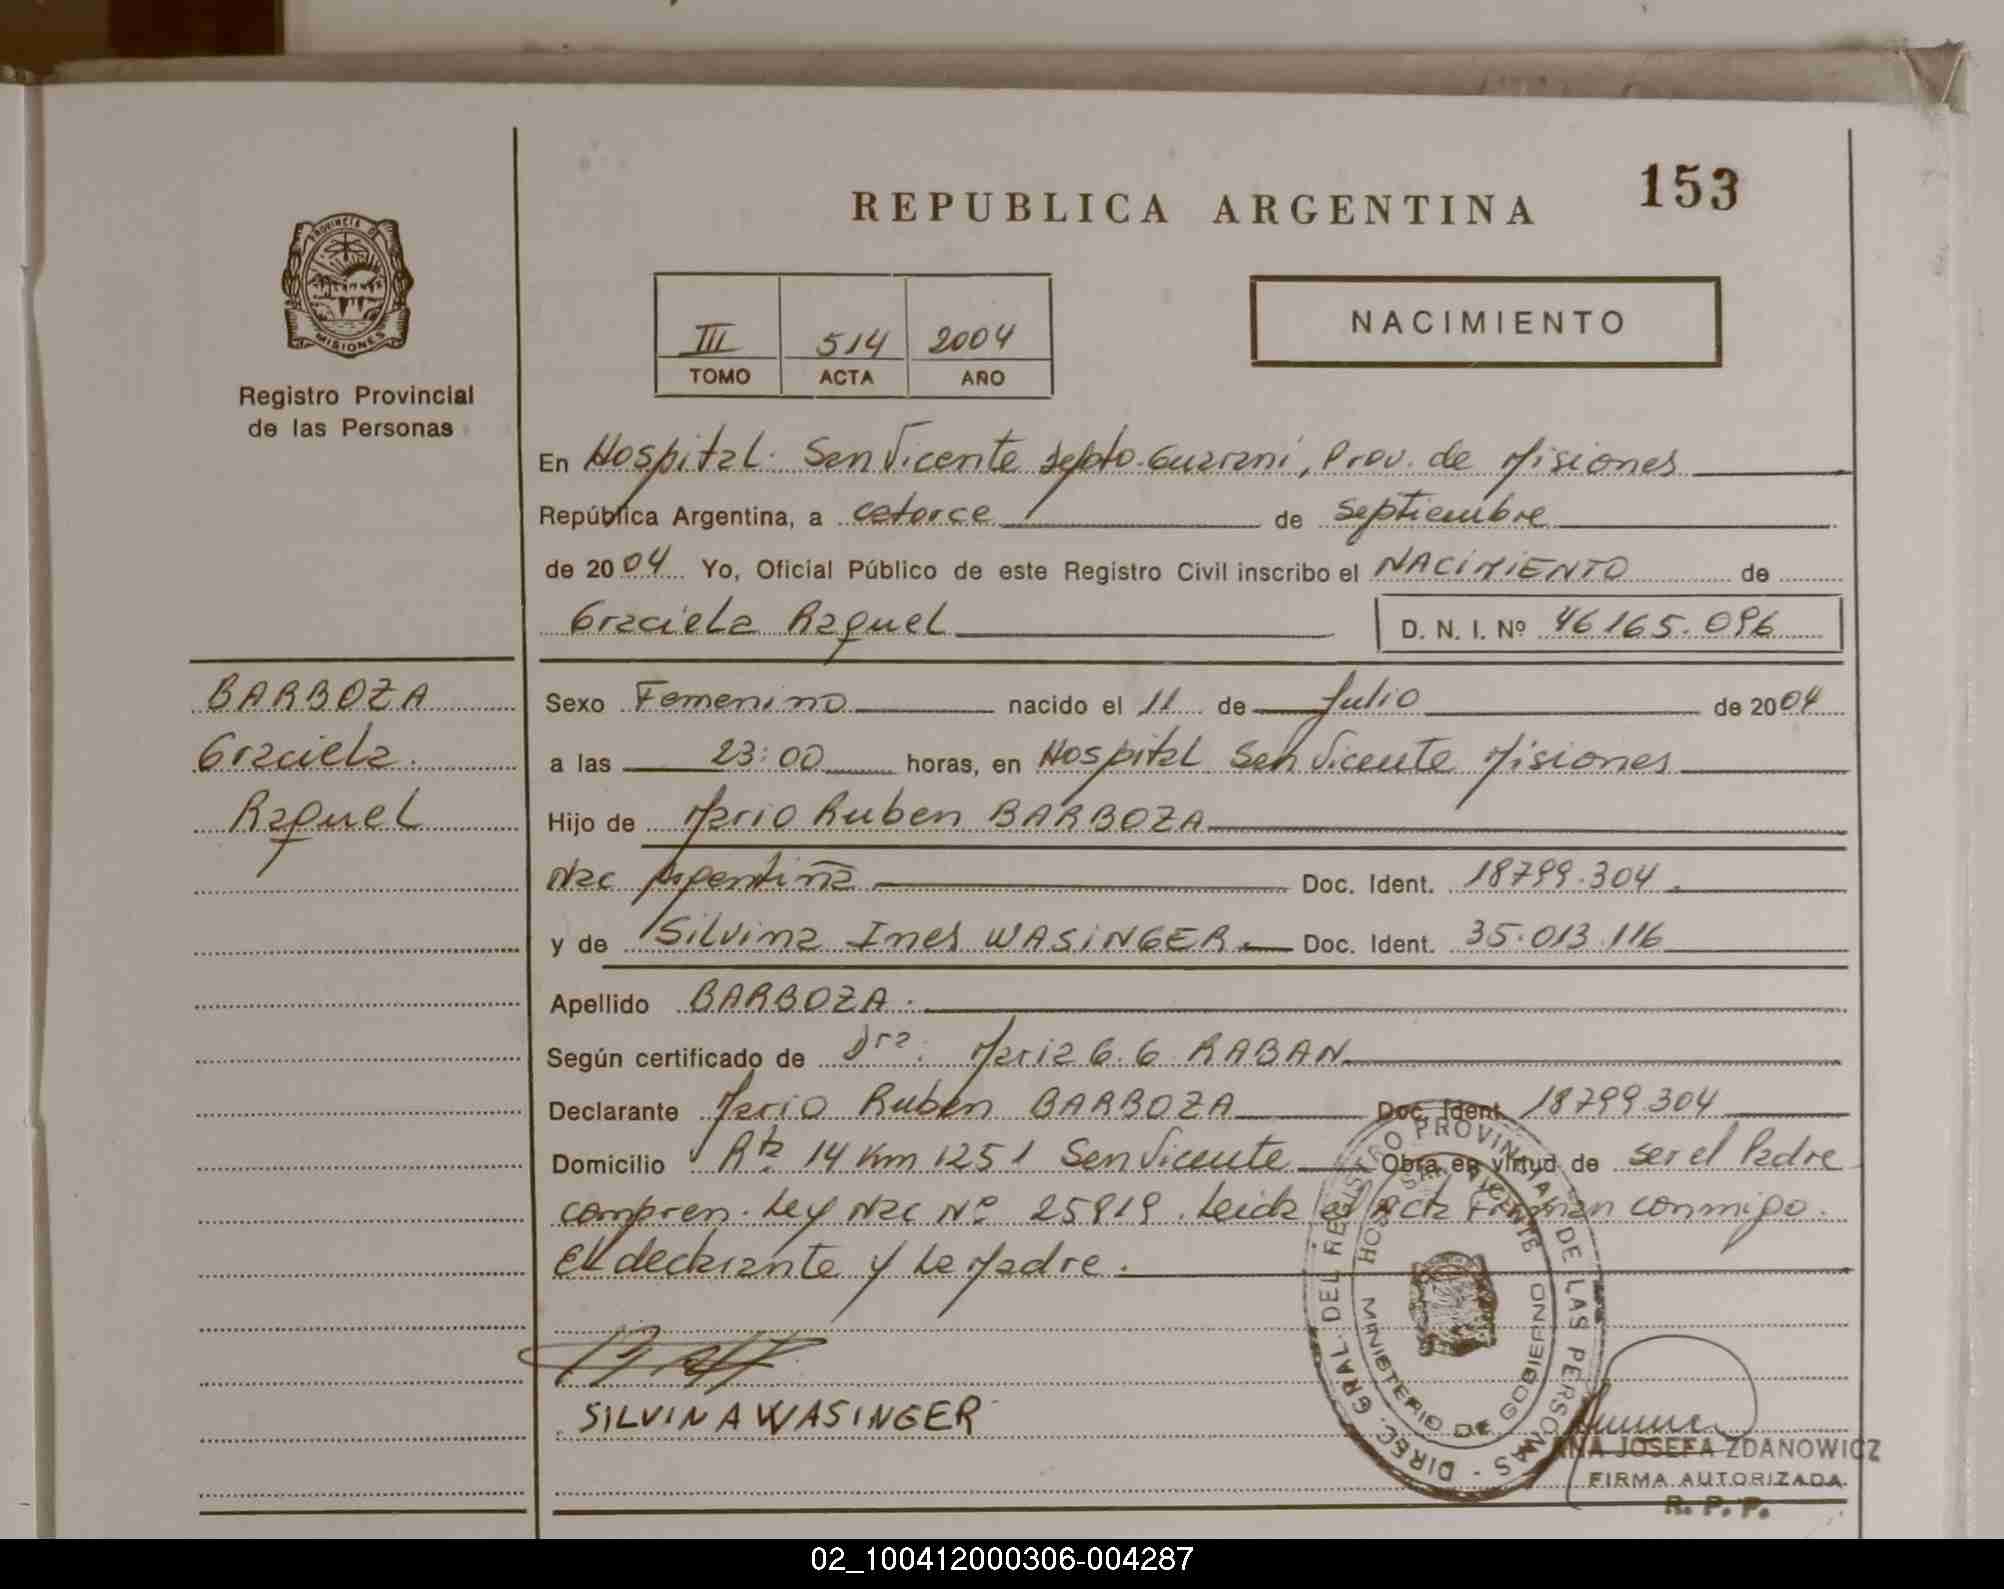 REPUBLICA ARGENTINA
153
PROVINCIA D
MISIONES
Registro Provincial
de las Personas
III 514 2004
TOMO ACTA AÑO
NACIMIENTO
En Hospital San Vicente Depto. Guarani, Prov. de Misiones
República Argentina, a catorce de septiembre
de 2004 Yo, Oficial Público de este Registro Civil inscribo el NACIMIENTO de
Graciela Raquel
D. N. I. Nº 46165.096
BARBOZA
Graciela
Raquel
Sexo Femenino nacido el 11 de Julio de 2004
a las 23:00 horas, en Hospital San Vicente Misiones
Hijo de Mario Ruben BARBOZA
Nac Argentina Doc. Ident. 18799.304
y de Silvina Ines WASINGER Doc. Ident. 35.013.116
Apellido BARBOZA.
Según certificado de Dra. Maria G. G. RABAN
Declarante Mario Ruben BARBOZA Doc. Ident. 18799304
Domicilio Rta 14 Km 1251 San Vicente Obra en virtud de ser el Padre
compren. Ley Nac Nº 25819. Leida el Acta Firman conmigo.
El declarante y la Madre.
SILVINA WASINGER
DIREC. GRAL. DEL REGISTRO PROVINCIAL DE LAS PERSONAS
HOSP. SAN VICENTE
MINISTERIO DE GOBIERNO
ANA JOSEFA ZDANOWICZ
FIRMA AUTORIZADA
R. P. P.
02_100412000306-004287